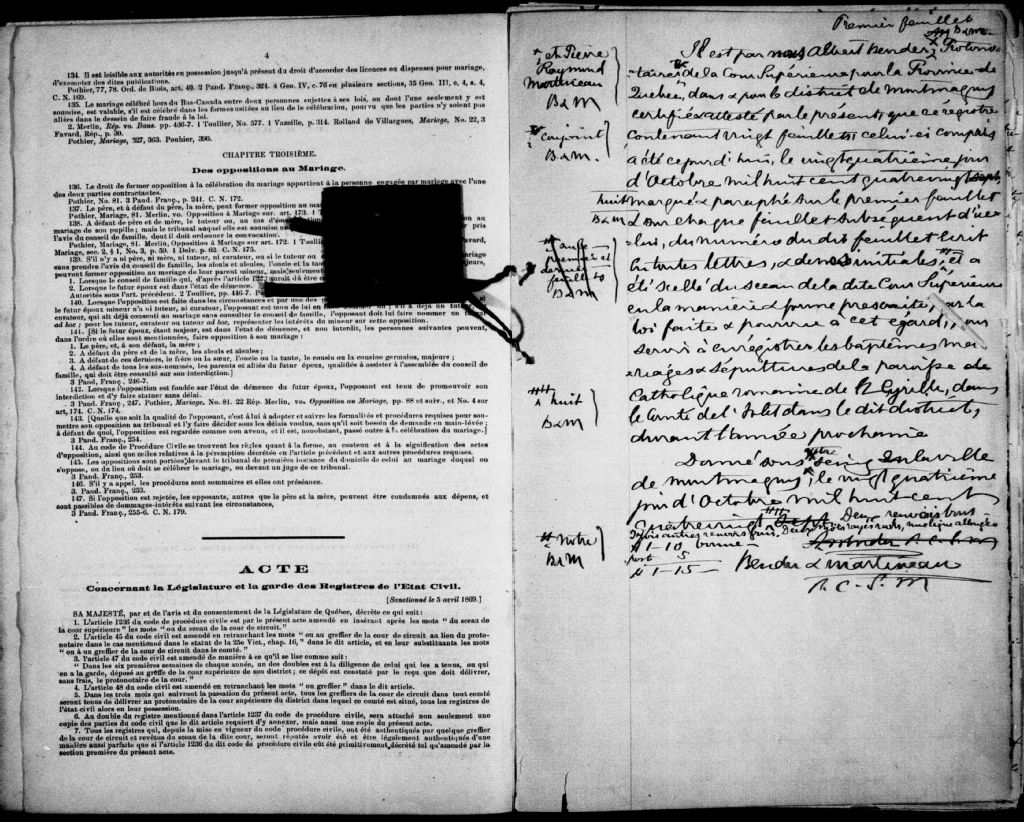 4
134. Il est loisible aux autorités en possession jusqu'à présent du droit d'accorder des licences ou dispenses pour mariage,
d'exempter des dites publications.
Pothier, 77, 78. Ord. de Blois, art. 40. 2 Pand. Franç., 324. 4 Geo. IV, c. 76 en plusieurs sections, 35 Geo. III, c. 4, s. 4,
C. N. 169.
135. Le mariage célébré hors du Bas-Canada entre deux personnes sujettes à ses lois, ou dont l'une seulement y est
soumise, est valable, s'il est célébré dans les formes usitées au lieu de la célébration, pourvu que les parties n'y soient pas
allées dans le dessein de faire fraude à la loi.
2. Merlin, Rép. vo. Bans. pp. 436-7. 1 Toullier, No. 577. 1 Vazeille, p. 314. Rolland de Villargues, Mariage, No. 22, 3
Favard. Rép., p. 30.
Pothier, Mariage, 227, 363. Pothier, 390.
CHAPITRE TROISIÈME.
Des oppositions au Mariage.
136. Le droit de former opposition à la célébration du mariage appartient à la personne engagée par mariage avec l'une
des deux parties contractantes.
Pothier, No. 81. 3 Pand. Franç., p. 241. C. N. 172.
137. Le père, et à défaut du père, la mère, peut former opposition au
Pothier, Mariage, 81. Merlin. vo. Opposition à Mariage sur. art. 173. 1
138. A défaut de père et de mère, le tuteur ou, au cas d'é
mariage de son pupille; mais le tribunal auquel elle est soumise
l'avis du conseil de famille, dont il doit ordonner la convocation.
Pothier, Mariage, 81. Merlin, Opposition à Mariage sur art. 172. 1
Mariage, sec. 2, § 1, No. 3, p. 59. 1 Delv. p. 62. C. N. 175.
139. S'il n'y a ni père, ni mère, ni tuteur, ni curateur, ou si le tuteur ou
sans prendre l'avis du conseil de famille, les aïeuls et aïeules, l'oncle et la
peuvent former opposition au mariage de leur parent mineur, mais seulement
1. Lorsque le conseil de famille qui, d'après l'article
2. Lorsque le futur époux est dans l'état de démence.
Autorités sous l'art. précédent. 2 Toullier, pp. 446-7.
140. Lorsque l'opposition est faite dans les circonstances et par une des
le futur époux mineur n'a ni tuteur, ni curateur, l'opposant est tenu de lui en
curateur, qui ait déjà consenti au mariage sans consulter le conseil de famille, l'opposant doit lui faire nommer un
ad hoc; pour les tuteur, curateur ou tuteur ad hoc, représenter les intérêts du mineur sur cette opposition.
141. [Si le futur époux, étant majeur, est dans l'état de démence, et non interdit, les personnes suivantes peuvent,
dans l'ordre où elles sont mentionnées, faire opposition à son mariage :
1. Le père, et, à son défaut, la mère ;
2. A défaut du père et de la mère, les aïeuls et aïeules;
3. A défaut de ces derniers, le frère ou la sœur, l'oncle ou la tante, le cousin ou la cousine germains, majeurs ;
4. A défaut de tous les sus-nommés, les parents et alliés du futur époux, qualifiés à assister à l'assemblée du conseil
de famille, qui doit être consulté sur son interdiction.]
3 Pand. Franç., 246-7.
142. Lorsque l'opposition est fondée sur l'état de démence du futur époux, l'opposant est tenu de promouvoir son
interdiction et d'y faire statuer sans délai.
3 Pand. Franç., 247. Pothier, Mariage, No. 81. 22 Rép. Merlin, vo. Opposition au Mariage, pp. 88 et suiv., et No. 4 sur
art, 174. C. N. 174.
143. [Quelle que soit la qualité de l'opposant, c'est à lui à adopter et suivre les formalités et procédures requises pour sou-
mettre son opposition au tribunal et l'y faire décider sous les délais voulus, sans qu'il soit besoin de demande en main-levée ;
à défaut de quoi, l'opposition est regardée comme non avenu, et il est, nonobstant, passé outre à la célébration du mariage.]
3 Pand. Franç., 254.
144. Au code de Procédure Civile se trouvent les règles quant à la forme, au contenu et à la signification des actes
d'opposition, ainsi que celles relatives à la péremption décrétée en l'article précédent et aux autres procédures requises.
145. Les oppositions sont portées devant le tribunal de première instance du domicile de celui au mariage duquel on
s'oppose, ou du lieu où doit se célébrer le mariage, ou devant un juge de ce tribunal.
3 Pand. Franç., 253.
146. S'il y a appel, les procédures sont sommaires et elles ont préséance.
3. Pand. Franç., 253.
147. Si l'opposition est rejetée, les opposants, autres que le père et la mère, peuvent être condamnés aux dépens, et
sont passibles de dommages-intérêts suivant les circonstances,
3 Pand. Franç., 255-6. C. N. 179.
ACTE
Concernant la Législature et la garde des Registres de l'Etat Civil.
[Sanctionné le 5 avril 1869.]
SA MAJESTÉ, par et de l'avis et du consentement de la Législature de Québec, décrète ce qui suit:
1. L'article 1236 du code de procédure civile est par le présent acte amendé en insérant après les mots " du sceau de
la cour supérieure " les mots " ou du sceau de la cour de circuit."
2. L'article 45 du code civil est amendé en retranchant les mots " ou au greffier de la cour de circuit au lieu du proto-
notaire dans le cas mentionné dans le statut de la 25e Vict., chap. 16," dans le dit article, et en leur substituant les mots
" ou à un greffier de la cour de circuit dans le comté."
3. l'article 47 du code civil est amendé de manière à ce qu'il se lise comme suit :
" Dans les six premières semaines de chaque année, un des doubles est à la diligence de celui qui les a tenus, ou qui
en a la garde, déposé au greffe de la cour supérieure de son district; ce dépôt est constaté par le reçu que doit délivrer,
sans frais, le protonotaire de la cour. "
4. L'article 48 du code civil est amendé en retranchant les mots " ou greffier " dans le dit article.
5. Dans les trois mois qui suivront la passation du présent acte, tous les greffiers de la cour de circuit dans tout comté
seront tenus de délivrer au protonotaire de la cour supérieure du district dans lequel ce comté est situé, tous les registres de
l'état civil alors en leur possession.
6. Au double du registre mentionné dans l'article 1237 du code de procédure civile, sera attaché non seulement une
copie des parties du code civil que le dit article requiert d'y annexer, mais aussi une copie du présent acte.
7. Tous les registres qui, depuis la mise en vigueur du code procédure civile, ont été authentiqués par quelque greffier
de la cour de circuit et revêtus du sceau de la dite cour, seront réputés avoir été et être légalement authentiqués d'une
manière aussi parfaite que si l'article 1236 du dit code de procédure civile eût été primitivement décrété tel qu'amendé par la
section première du présent acte.
Premier feuillet
B&M.
Il est par nous Albert Bender, Protono-
taires de la Cour Supérieure pour la Province de
Québec, dans & pour le district de Montmagny
certifié & attesté par le présent, que ce registre
contenant vingt feuillets celui-ci compris
a été ce jourd'hui, le vingt quatrième jour
d'Octobre mil huit cent quatre vingt sept
marqué & paraphé sur le premier feuillet
& sur chaque feuillet subséquent d'ice-
lui, du numéro du dit feuillet écrit
en toutes lettres, & de nos initiales, et a
été scellé du sceau de la dite Cour Supérieure
en la manière & forme prescrite, par la
loi faite & pourvue à cet égard, pour
servir à enrégistrer les baptêmes ma-
riages & sépultures de la paroisse
Catholique romaine de St Cyrille, dans
le Comté de l'Islet dans le dit district,
durant l'année prochaine
Donné sous seing en la ville
de Montmagny, le vingt quatrième
jour d'Octobre mil huit cent
quatre vingt sept. Deux renvois bons
$1-10
5
$1-15
Bender & Martineau
P. C. S. M
et Pierre
Raymond
Martineau
B&M
conjoint
B&M.
huit
B&M
premier et
dernier
feuillets
B&M
huit
B&M
notre
B&M